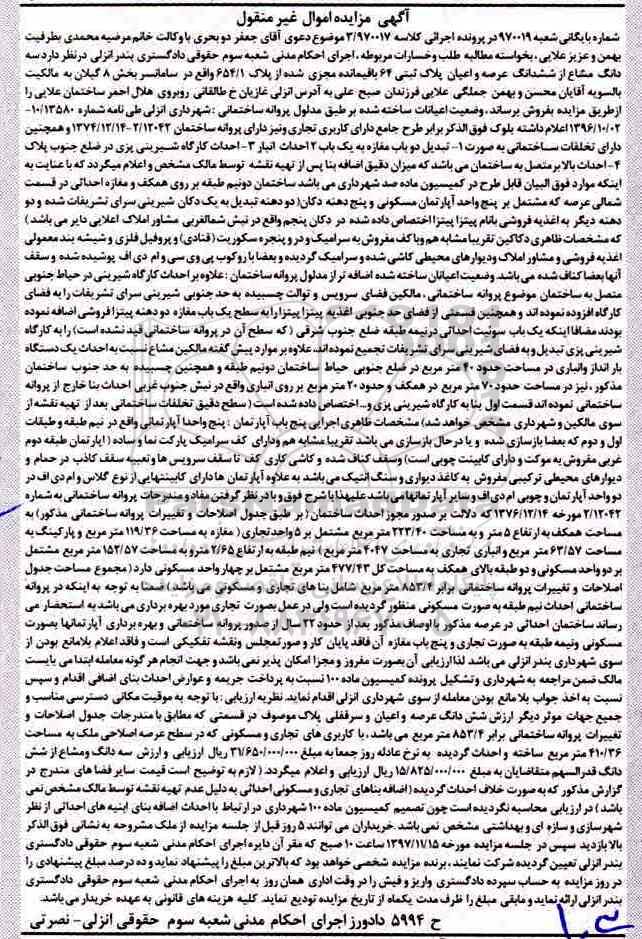 آگهی مزایده اموال غیر منقول
شماره بایگانی شعبه ۹۷۰۰۱۹ در پرونده اجرائی کلاسه ۳/۹۷۰۰۱۷ موضوع دعوی آقای جعفر دوبحری با وکالت خانم مرضیه محمدی بطرفیت
بهمن و عزیز علایی ، بخواسته مطالبه طلب وخسارات مربوطه ، اجرای احکام مدنی شعبه سوم حقوقی دادگستری بندر انزلی در نظر دارد سه
دانگ مشاع از ششدانگ عرصه و اعیان پلاک ثبتی ۶۴ باقیمانده مجزی شده از پلاک ۶۵۴/۱ واقع در سامانسر بخش ۸ گیلان به مالکیت
بالسویه آقایان محسن و بهمن جملگی علایی فرزندان صبح علی به آدرس انزلی غازیان خ طالقانی روبروی هلال احمر ساختمان علایی را
ازطریق مزایده بفروش برساند ، وضعیت اعیانات ساخته شده بر طبق مدلول پروانه ساختمانی : شهرداری انزلی طی نامه شماره ۱۰/۱۳۵۸۰-
۱۳۹۶/۱۰/۰۲ اعلام داشته بلوک فوق الذکر برابر طرح جامع دارای کاربری تجاری ونیز دارای پروانه ساختمان ۲/۱۲۰۴۲-۱۳۷۴/۱۲/۱۴ و همچنین
دارای تخلفات ساختمانی به صورت ۱- تبدیل دو باب مغازه به یک باب ۲ احداث انبار ۳- احداث کارگاه شیرینی پزی در ضلع جنوب پلاک
۴- احداث بالابر متصل به ساختمان می باشد که میزان دقیق اضافه بنا پس از تهیه نقشه توسط مالک مشخص و اعلام میگردد که با عنایت به
اینکه موارد فوق البیان قابل طرح در کمیسیون ماده صد شهرداری می باشد ساختمان دونیم طبقه بر روی همکف و مغازه احداثی در قسمت
شمالی عرصه که مشتمل بر پنج واحد آپارتمان مسکونی و پنج دهنه دکان( دو دهنه تبدیل به یک دکان شیرینی سرای تشریفات شده و دو
دهنه دیگر به اغذیه فروشی بانام پیتزا پیتزا اختصاص داده شده در دکان پنجم واقع در نبش شمالغربی مشاور املاک اعلایی دایر می باشد )
که مشخصات ظاهری دکاکین تقریبا مشابه هم وبا کف مفروش به سرامیک و در و پنجره سکوریت (قنادی) و پروفیل فلزی و شیشه بند معمولی
اغذیه فروشی و مشاور املاک ودیوارهای محیطی کاشی شده و سرامیک گردیده و بعضا با روکوب پی وی سی و ام دی اف پوشیده شده و سقف
آنها بعضا کناف شده می باشد. وضعیت اعیانان ساخته شده اضافه تر از مدلول پروانه ساختمان : علاوه بر احداث کارگاه شیرینی در حیاط جنوبی
متصل به ساختمان موضوع پروانه ساختمانی ، مالکین فضای سرویس و توالت چسبیده به حد جنوبی شیرینی سرای تشریفات را به فضای
کارگاه افزوده نموده اند و همچنین قسمتی از فضای حد جنوبی اغذیه پیتزا پیتزا را به سطح یک باب مغازه دو دهنه پیتزا فروشی اضافه نموده
بودند مضافا اینکه یک باب سوئیت احداثی درنیمه طبقه ضلع جنوب شرقی ( که سطح آن در پروانه ساختمانی قید نشده است ) را به کارگاه
شیرینی پزی تبدیل و به فضای شیرینی سرای تشریفات تجمیع نموده اند، علاوه بر موارد پیش گفته مالکین مشاع نسبت به احداث یک دستگاه
بار انداز وانباری در مساحت حدود ۴۰ متر مربع در ضلع جنوبی حیاط ساختمان دونیم طبقه و همچنین چسبیده به حد جنوب ساختمان
مذکور ، نیز در مساحت حدود ۷۰ متر مربع در همکف و حدود ۲۰ متر مربع بر روی انباری واقع در نبش جنوب غربی احداث بنا خارج از پروانه
ساختمانی نموده اند قسمت اول بنا به کارگاه شیرینی پزی و... اختصاص داده شده است ( سطح دقیق تخلفات ساختمانی بعد از تهیه نقشه از
سوی مالکین و شهرداری مشخص خواهد شد) مشخصات ظاهری اجرایی پنج باب آپارتمان : پنج واحدا آپارتمانی واقع در نیم طبقه و طبقات
اول و دوم که بعضا بازسازی شده و یا درحال بازسازی می باشد تقریبا مشابه هم ودارای کف سرامیک پارکت نما و ساده ( اپارتمان طبقه دوم
غربی مفروش به موکت و دارای کابینت چوبی است) وسقف کناف شده و کاشی کاری کف تا سقف سرویس ها وتعبیه سقف کاذب در حمام و
دیوارهای محیطی ترکیبی مفروش به کاغذ دیواری و سنگ انتیک می باشد به علاوه آپارتمان ها دارای کابینتهایی از نوع گلاس و ام دی اف در
دو واحد آپارتمان و چوبی ام دی اف و سایر آپارتمانها می باشد علیهذا با شرح فوق و با در نظر گرفتن مفاد و مندرجات پروانه ساختمانی به شماره
۲/۱۲۰۴۲ مورخه ۱۳۷۶/۱۲/۱۴ که دلالت بر صدور مجوز احداث ساختمان ( بر طبق جدول اصلاحات و تغییرات پروانه ساختمانی مذکور) به
مساحت همکف به ارتفاع ۵ متر و به مساحت ۲۲۳/۴۰ متر مربع مشتمل بر ۵ واحد تجاری ( مغازه به مساحت ۱۱۹/۳۶ متر مربع و پارکینگ به
مساحت ۶۳/۵۷ متر مربع و انباری تجاری به مساحت ۴۰۴۷ متر مربع ) نیم طبقه به ارتفاع ۲/۶۵ متر و به مساحت ۱۵۲/۵۷ متر مربع مشتمل
بر دو واحد مسکونی و دو طبقه بالای همکف به مساحت کل ۴۷۷/۴۳ متر مربع مشتمل بر چهار واحد مسکونی دارد ( مجموع مساحت جدول
اصلاحات و تغییرات پروانه ساختمانی برابر ۸۵۳/۴ متر مربع شامل بنا های تجاری و مسکونی می باشد ) ضمنا با توجه به اینکه در پروانه
ساختمانی احداث نیم طبقه به صورت مسکونی منظور گردیده است ولی در عمل بصورت تجاری مورد بهره برداری می باشد به استحضار می
رساند ساختمان احداثی در عرصه مذکور با اوصاف مذکور بعد از حدود ۲۲ سال از صدور پروانه ساختمانی و بهره برداری آپارتمانها بصورت
مسکونی ونیمه طبقه به صورت تجاری و پنج باب مغازه آن فاقد پایان کار و صورتمجلس ونقشه تفکیکی است و فاقد اعلام بلامانع بودن از
سوی شهرداری بندر انزلی می باشد لذا ارزیابی آن بصورت مفروز و مجزا امکان پذیر نمی باشد و جهت انجام هر گونه معامله ابتدا می بایست
مالک ضمن مراجعه به شهرداری وتشکیل پرونده کمیسیون ماده ۱۰۰ نسبت به پرداخت جریمه و عوارض احداث بنای اضافی اقدام و سپس
نسبت به اخذ جواب بلا مانع بودن معامله از سوی شهرداری انزلی اقدام نماید. نظریه ارزیابی : با توجه به موقیت مکانی دسترسی مناسب و
جمیع جهات موثر دیگر ارزش شش دانگ عرصه و اعیان و سرقفلی پلاک موصوف در قسمتی که مطابق با مندرجات جدول اصلاحات و
تغییرات پروانه ساختمانی برابر ۸۵۳/۴ متر مربع می باشد ، با کاربری های تجاری و مسکونی که در سطح عرصه اصلاحی ملک به مساحت
۴۱۰/۳۶ متر مربع ساخته و احداث گردیده به نرخ عادله روز جمعا به مبلغ ۳۱/۶۵۰/۰۰۰/۰۰۰ ریال ارزیابی و ارزش سه دانگ ومشاع از شش
دانگ قدرالسهم متقاضایان به مبلغ ۱۵/۸۲۵/۰۰۰/۰۰۰ ریال ارزیابی و اعلام میگردد ( لازم به توضیح است قیمت سایر فضا های مندرج در
گزارش مذکور که به صورت خلاف احداث گردیده ( اضافه بناهای تجاری و مسکونی احداثی به دلیل عدم تهیه نقشه توسط مالک مشخص نمی
باشد ) در ارزیابی محاسبه نگردیده است چون تصمیم کمیسیون ماده ۱۰۰ شهرداری در ارتباط با احداث اضافه بنای ابنیه های احداثی از نظر
شهرسازی و سازه ای و بهداشتی مشخص نمی باشد. خریداران می توانند ۵ روز قبل از جلسه مزایده از ملک مشروحه به نشانی فوق الذکر
بالا بازدید سپس در جلسه مزایده مورخه ۱۳۹۷/۱۱/۱۵ ساعت ۱۰ صبح که مقر آن دایره اجرای احکام مدنی شعبه سوم حقوقی دادگستری
بندر انزلی تعیین گردیده شرکت نمایند ، برنده مزایده شخصی خواهد بود که بالاترین مبلغ را پیشنهاد نماید و ده درصد مبلغ پیشنهادی را
در روز مزایده به حساب سپرده دادگستری واریز و فیش را در وقت اداری همان روز به اجرای احکام مدنی شعبه سوم حقوقی دادگستری
بندر انزلی ارائه نماید و مابقی مبلغ را ظرف مدت یکماه از تاریخ مزایده تودیع نماید. کلیه هزینه های قانونی به عهده خریدار می باشد.
ح ۵۹۹۴ دادورز اجرای احکام مدنی شعبه سوم حقوقی انزلی- نصرتی